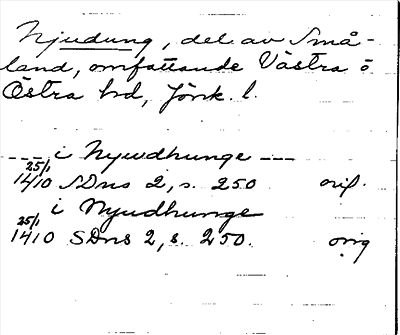 Njudung, del av Små-
land, omfattande Västra o
Östra hd, Jönk. l.
--- i Nyudhunge ---
25/1
1410 SDns 2, s. 250 orig.
i Nyudhunge
25/1
1410 SDns 2, s. 250. orig